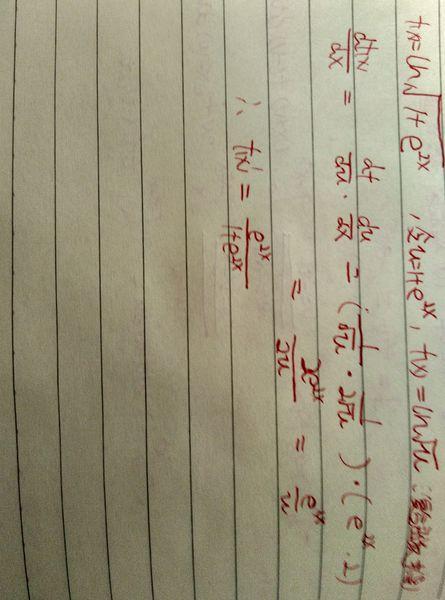 f(x)=ln√(1+e^{2x}) , 令u=1+e^{2x}, f(x)=ln√u
df(x)/dx = df/du · du/dx = (1/√u · 1/2√u)·(e^{2x}·2)
= 2e^{2x}/2u = e^{2x}/u
∴ f(x)' = e^{2x}/1+e^{2x}